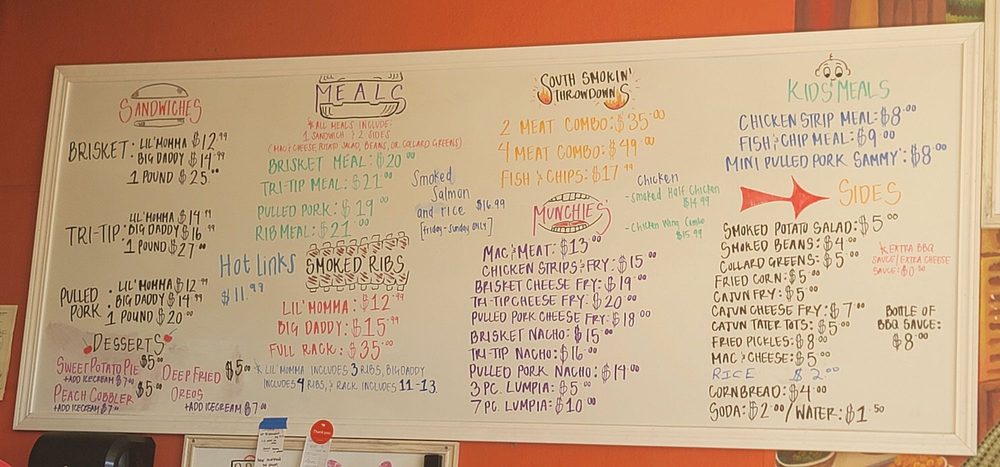 SANDWICHES
BRISKET • LIL' MOMMA $12.99
BIG DADDY $14.99
1 POUND $25.00
TRI-TIP: LIL' MOMMA $14.99
BIG DADDY $16.99
1 POUND $27.00
PULLED PORK • LIL' MOMMA $12.99
BIG DADDY $14.99
1 POUND $20.00
DESSERTS
SWEET POTATO PIE $5.00
+ADD ICECREAM $7.00
PEACH COBBLER $5.00
+ADD ICECREAM $7.00
DEEP FRIED OREOS $5.00
+ADD ICECREAM $7.00
MEALS
*ALL MEALS INCLUDE:
1 SANDWICH & 2 SIDES
(MAC & CHEESE, POTATO SALAD, BEANS, OR COLLARD GREENS)
BRISKET MEAL: $20.00
TRI-TIP MEAL: $21.00
PULLED PORK: $19.00
RIB MEAL: $21.00
Smoked
Salmon
and rice $16.99
[Friday-Sunday only]
Hot Links
$11.99
SMOKED RIBS
LIL' MOMMA: $12.99
BIG DADDY: $15.99
FULL RACK: $35.00
* LIL' MOMMA INCLUDES 3 RIBS, BIG DADDY
INCLUDES 4 RIBS, & RACK INCLUDES 11-13.
SOUTH SMOKIN'
THROWDOWNS
2 MEAT COMBO: $35.00
4 MEAT COMBO: $49.00
FISH & CHIPS: $17.99
Chicken
- smoked Half Chicken
$14.99
- Chicken Wing Combo
$15.99
MUNCHIES
MAC & MEAT: $13.00
CHICKEN STRIPS & FRY: $15.00
BRISKET CHEESE FRY: $19.00
TRI-TIP CHEESE FRY: $20.00
PULLED PORK CHEESE FRY: $18.00
BRISKET NACHO: $15.00
TRI-TIP NACHO: $16.00
PULLED PORK NACHO: $14.00
3 PC. LUMPIA: $5.00
7 PC. LUMPIA: $10.00
KIDS' MEALS
CHICKEN STRIP MEAL: $8.00
FISH & CHIP MEAL: $9.00
MINI PULLED PORK SAMMY: $8.00
SIDES
SMOKED POTATO SALAD: $5.00
SMOKED BEANS: $4.00
COLLARD GREENS: $5.00
FRIED CORN: $5.00
CAJUN FRY: $5.00
CAJUN CHEESE FRY: $7.00
CAJUN TATER TOTS: $5.00
FRIED PICKLES: $8.00
MAC & CHEESE: $5.00
RICE $2.00
CORNBREAD: $4.00
SODA: $2.00 / WATER: $1.50
* EXTRA BBQ
SAUCE/EXTRA CHEESE
SAUCE: $0.50
BOTTLE OF
BBQ SAUCE:
$8.00
Thank you